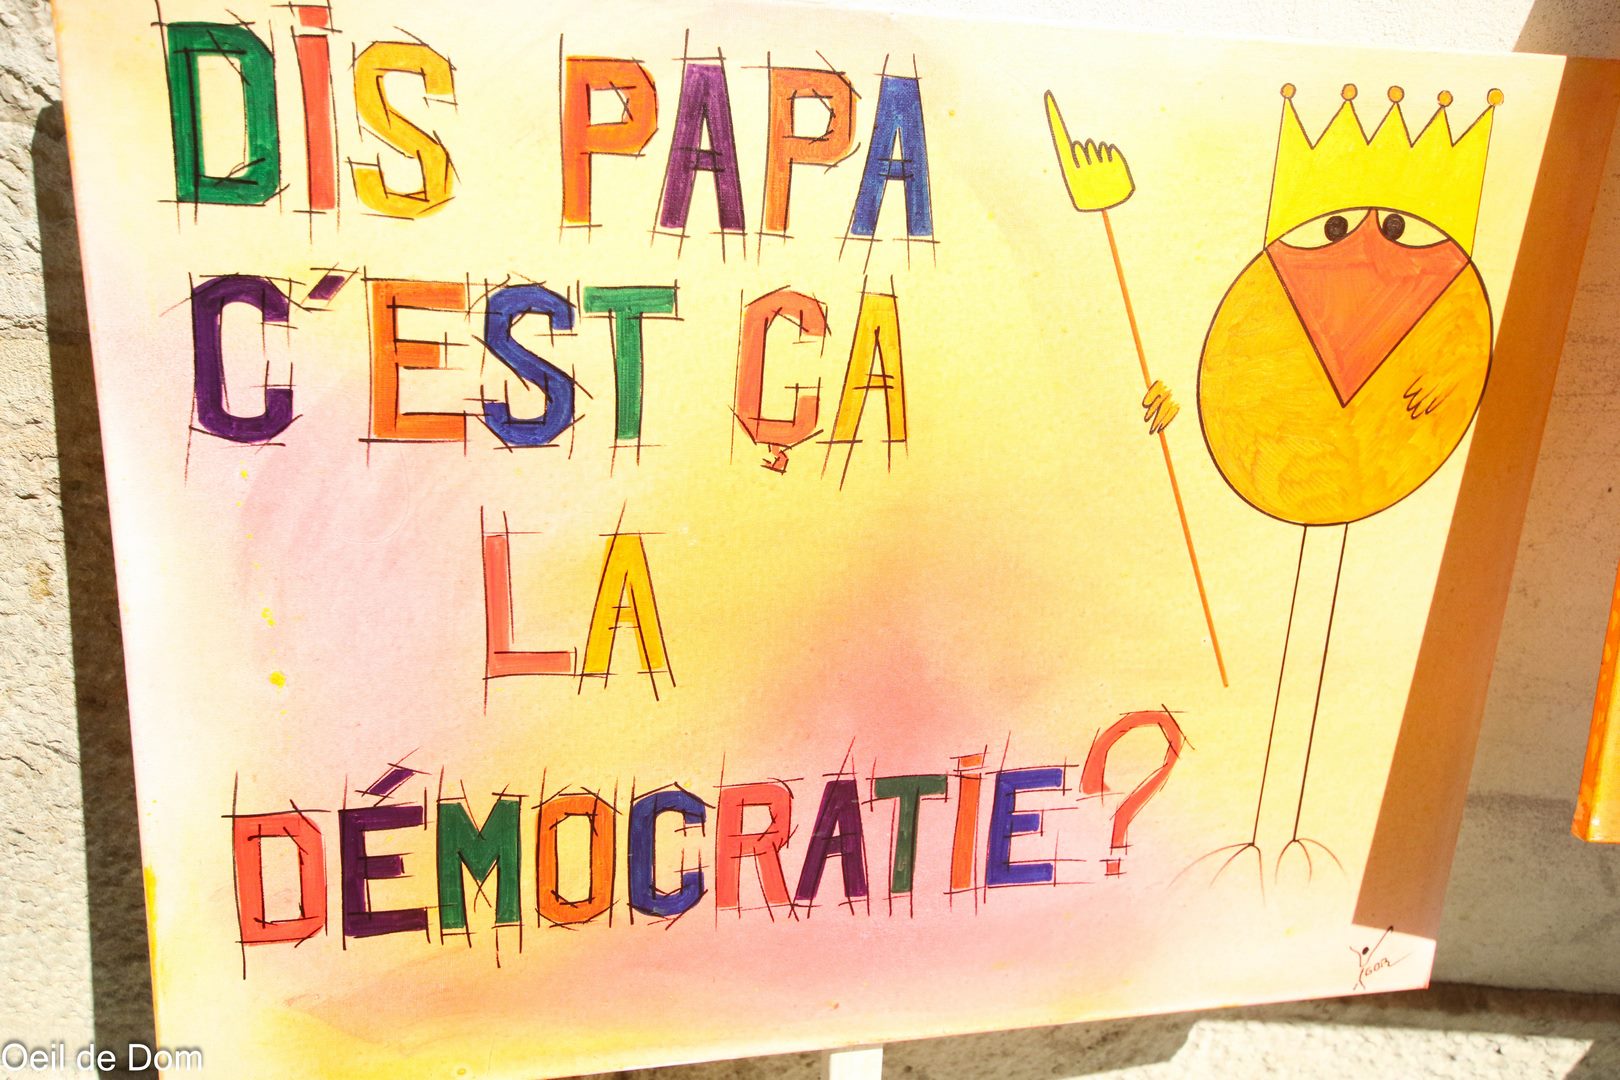 DIS PAPA
C'EST ÇA
LA
DÉMOCRATIE?
Oeil de Dom